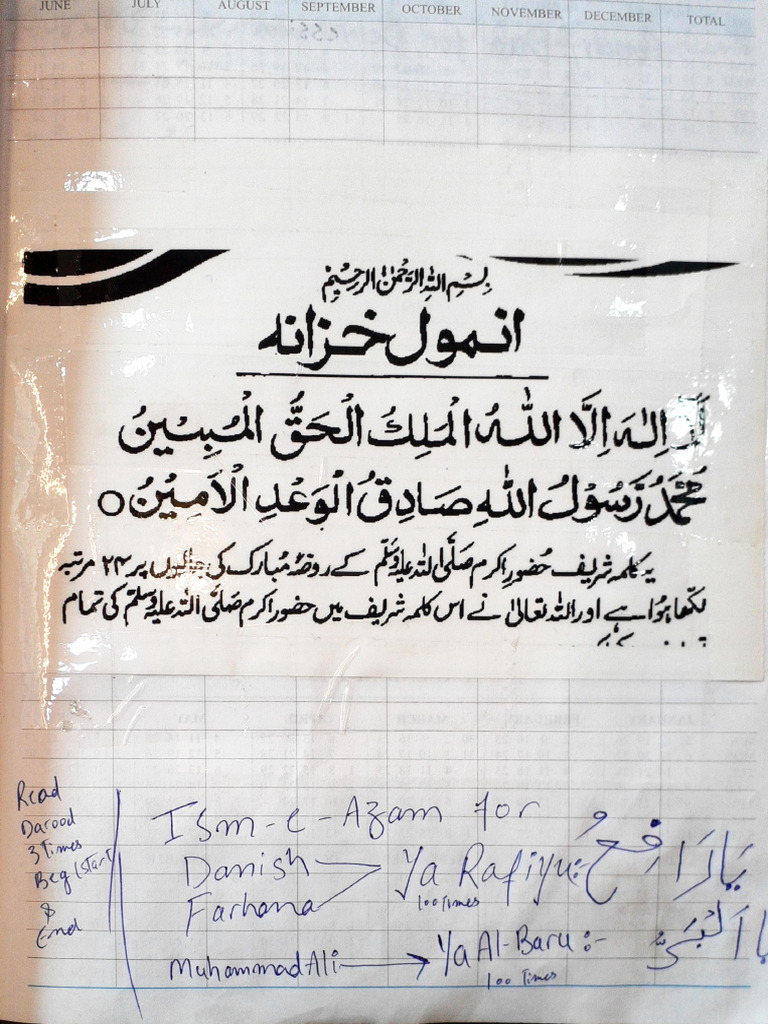 JUNE JULY AUGUST SEPTEMBER OCTOBER NOVEMBER DECEMBER TOTAL
بِسْمِ اللهِ الرَّحْمٰنِ الرَّحِيْمِ
انمول خزانہ
لَآ اِلٰهَ اِلَّا اللّٰهُ الْمَلِكُ الْحَقُّ الْمُبِيْنُ
مُحَمَّدٌ رَّسُوْلُ اللّٰهِ صَادِقُ الْوَعْدِ الْاَمِيْنُ ○
یہ کلمہ شریف حُضورِ اکرم صَلَّی اللہ علیہ وسلّم کے روضۂ مُبارک کی جالیوں پر ۲۴ مرتبہ
لکھا ہوُا ہے اور اللہ تعالیٰ نے اس کلمہ شریف میں حضور اکرم صَلَّی اللہ علیہ وسلّم کی تمام
Read
Darood
3 Times
Beg/Start
&
End
Ism-e-Azam for
Danish
Farhana
Ya Rafiyu:- يَا رَافِعُ
100 Times
Muhammad Ali → Ya Al-Baru:- يا اَلْبَرُّ
100 Times